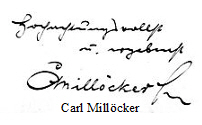 Hochachtungsvollst
u. ergebenst
CMillöcker
Carl Millöcker